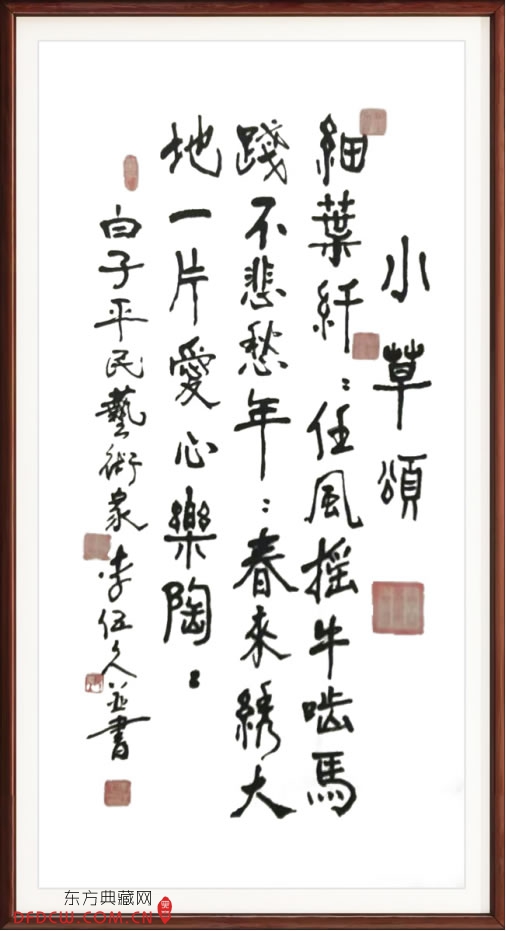 小草頌
細葉紆：任風摇牛啮馬
踐不悲愁年：春來绣大
地一片愛心樂陶：
白子平民藝術家李伍久並書
东方典藏网
DFDCW.COM.CN